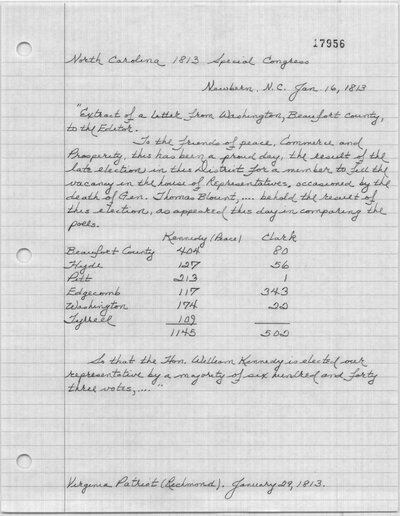 17956
North Carolina 1813 Special Congress
Newbern, N.C. Jan. 16, 1813
"Extract of a letter from Washington, Beaufort County,
to the Editor.
To the friends of peace, Commerce and
Prosperity, this has been a proud day, the result of the
late election in this District for a member to fill the
vacancy in the house of Representatives, occasioned by the
death of Gen. Thomas Blount, .... behold the result of
this election, as appeared this day in comparing the
polls.
Kennedy (Peace) Clark
Beaufort County 404 80
Hyde 127 56
Pitt 213 1
Edgecomb 117 343
Washington 174 22
Tyrrell 109
1145 502
So that the Hon. William Kennedy is elected our
representative by a majority of six hundred and forty
three votes, ...."
Virginia Patriot (Richmond). January 29, 1813.